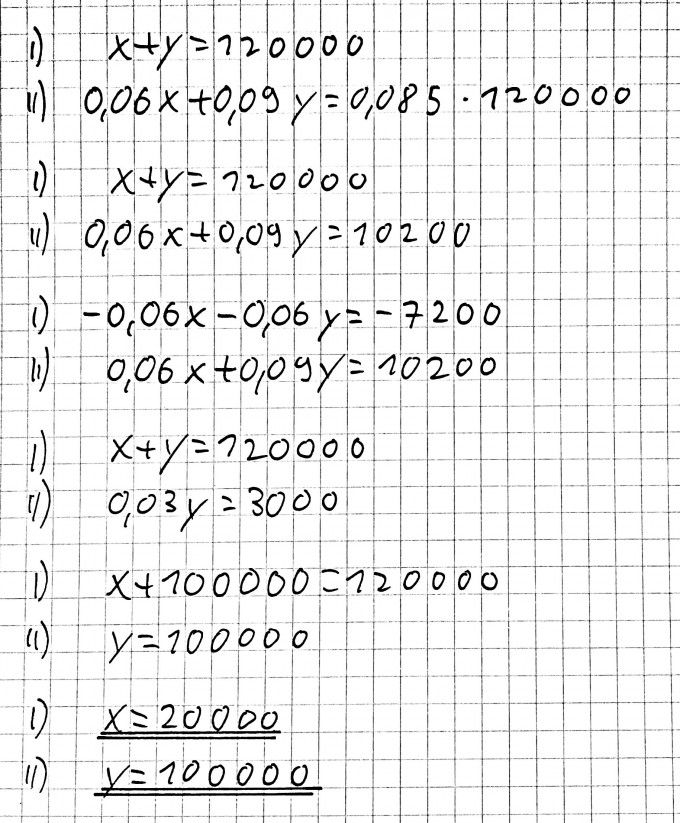 I) x+y=120000
II) 0,06x+0,09y=0,085·120000
I) x+y=120000
II) 0,06x+0,09y=10200
I) -0,06x-0,06y=-7200
II) 0,06x+0,09y=10200
I) x+y=120000
II) 0,03y=3000
I) x+100000=120000
II) y=100000
I) x=20000
II) y=100000